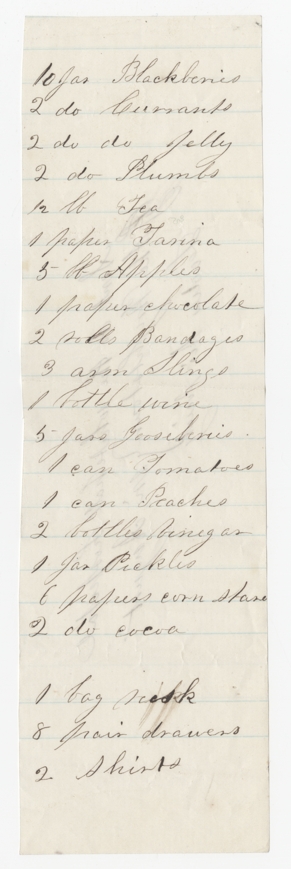 10 Jar Blackberies
2 do Currants
2 do do Jelly
2 do Plumbs
½ lb Tea
1 paper Farina
5 lb Apples
1 paper chocolate
2 rolls Bandages
3 arm Slings
1 bottle wine
5 Jars Gooseberies.
1 can Tomatoes
1 can Peaches
2 bottles vinegar
1 Jar Pickles
6 papers corn starc
2 do cocoa
1 bag rusk
8 pair drawers
2 shirts